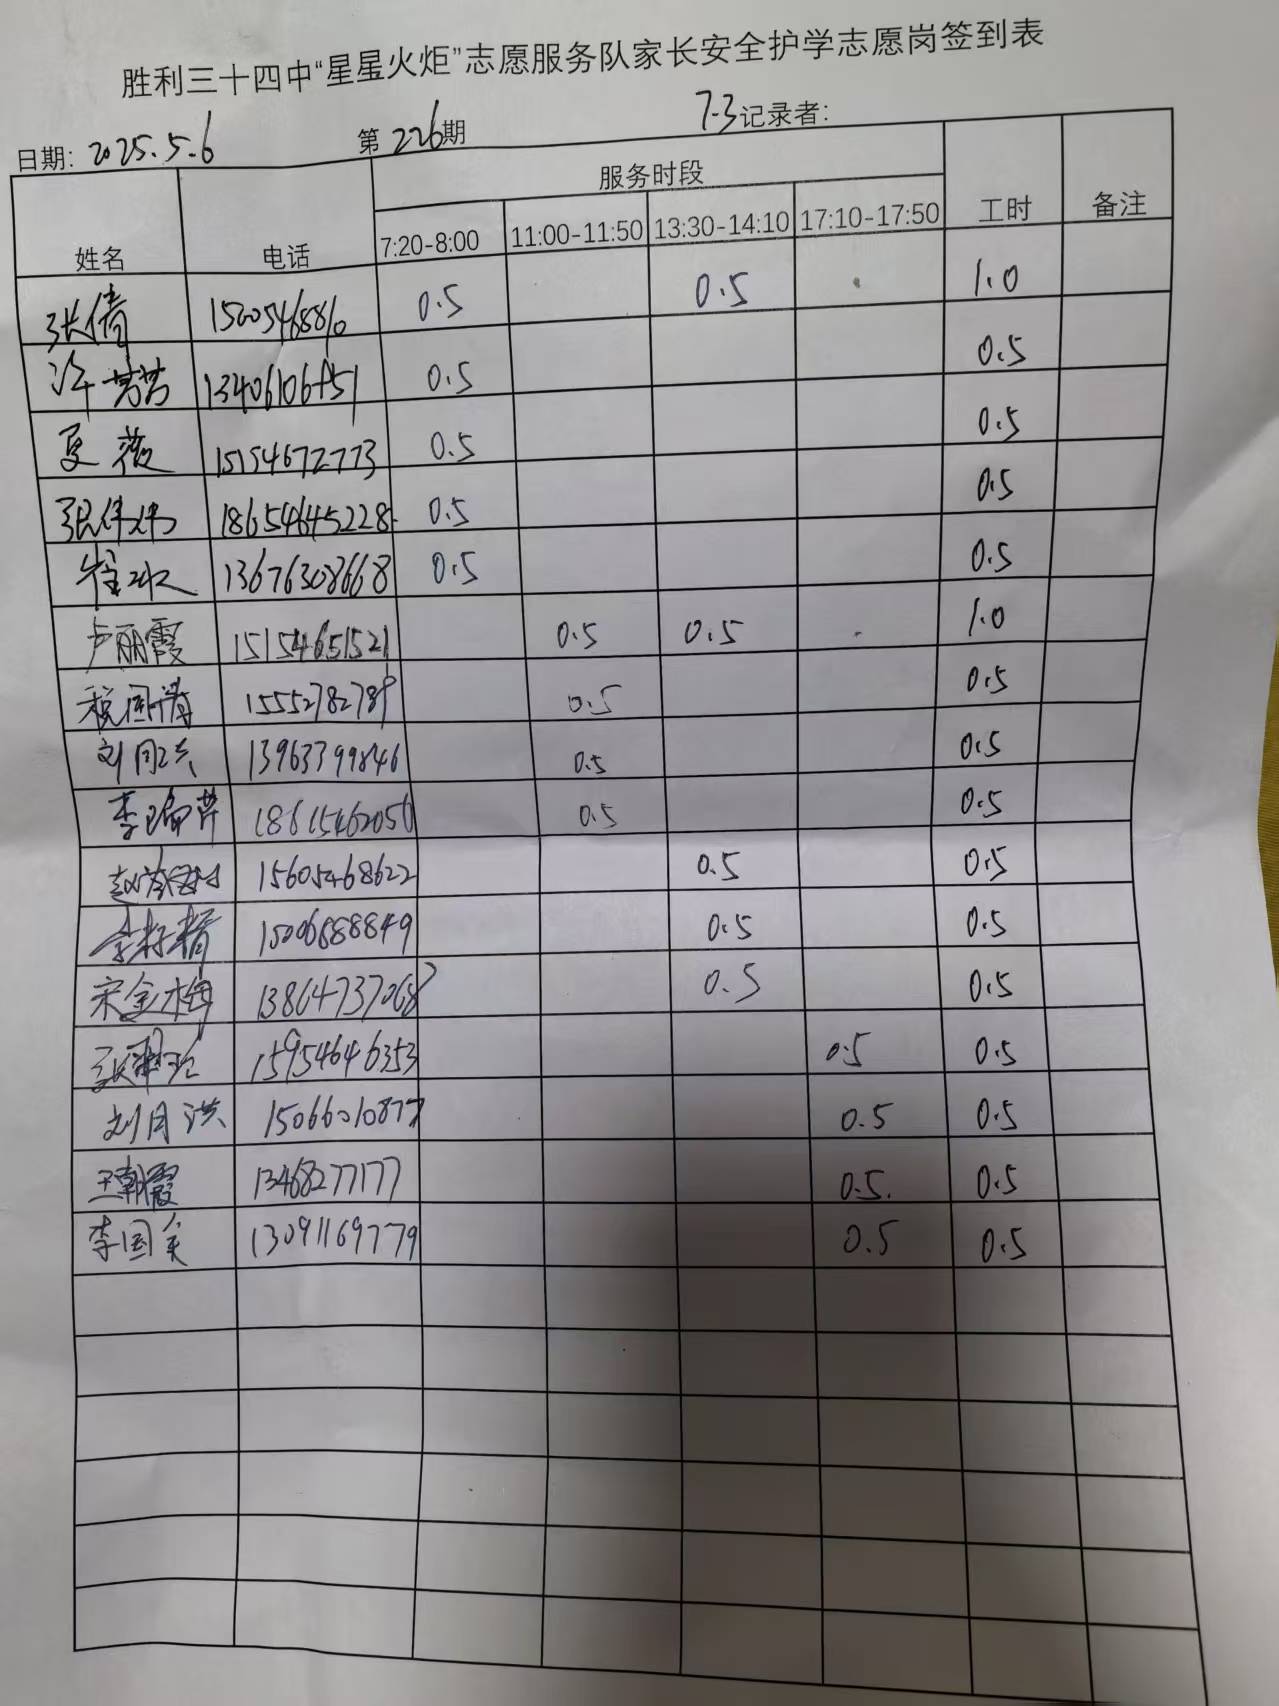 胜利三十四中“星星火炬”志愿服务队家长安全护学志愿岗签到表
日期: 2025.5.6 第 226 期 7-3 记录者:
姓名 电话 服务时段 工时 备注
7:20-8:00 11:00-11:50 13:30-14:10 17:10-17:50
张倩 0.5 0.5 1.0
许芳芳 0.5 0.5
夏薇 15154672773 0.5 0.5
张伟伟 18654645228 0.5 0.5
崔冰 13676308668 0.5 0.5
卢丽霞 15154651521 0.5 0.5 1.0
程国清 15552782789 0.5 0.5
刘同兴 13963799846 0.5 0.5
李瑜芹 18615462056 0.5 0.5
15605468622 0.5 0.5
15006888849 0.5 0.5
宋金梅 13864737068 0.5 0.5
15954646353 0.5 0.5
刘月洪 15066010877 0.5 0.5
王朝霞 13468277177 0.5 0.5
李国美 13091169779 0.5 0.5